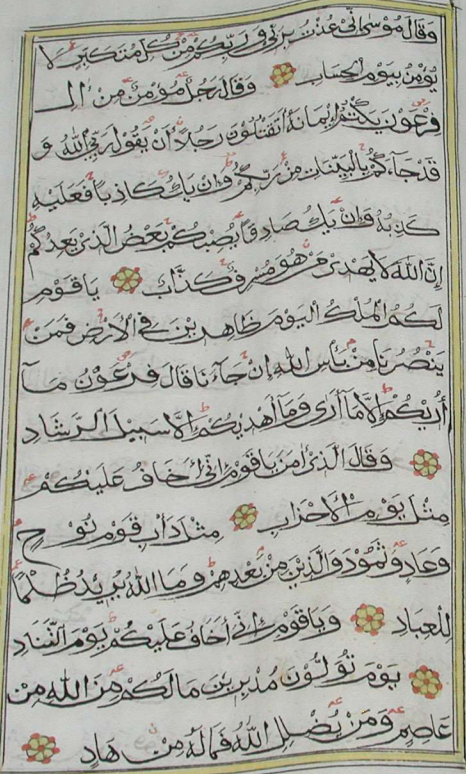 وَقَالَ مُوسَىٰ إِنِّي عُذْتُ بِرَبِّي وَرَبِّكُمْ مِنْ كُلِّ مُتَكَبِّرٍ لَا
يُؤْمِنُ بِيَوْمِ الْحِسَابِ وَقَالَ رَجُلٌ مُؤْمِنٌ مِنْ اٰلِ
فِرْعَوْنَ يَكْتُمُ إِيمَانَهُ أَتَقْتُلُونَ رَجُلًا أَنْ يَقُولَ رَبِّيَ اللَّهُ وَ
قَدْ جَاءَكُمْ بِالْبَيِّنَاتِ مِنْ رَبِّكُمْ وَإِنْ يَكُ كَاذِبًا فَعَلَيْهِ
كَذِبُهُ وَإِنْ يَكُ صَادِقًا يُصِبْكُمْ بَعْضُ الَّذِي يَعِدُكُمْ
إِنَّ اللَّهَ لَا يَهْدِي مَنْ هُوَ مُسْرِفٌ كَذَّابٌ يَا قَوْمِ
لَكُمُ الْمُلْكُ الْيَوْمَ ظَاهِرِينَ فِي الْأَرْضِ فَمَنْ
يَنْصُرُنَا مِنْ بَأْسِ اللَّهِ إِنْ جَاءَنَا قَالَ فِرْعَوْنُ مَا
أُرِيكُمْ إِلَّا مَا أَرَىٰ وَمَا أَهْدِيكُمْ إِلَّا سَبِيلَ الرَّشَادِ
وَقَالَ الَّذِي اٰمَنَ يَا قَوْمِ إِنِّي أَخَافُ عَلَيْكُمْ
مِثْلَ يَوْمِ الْأَحْزَابِ مِثْلَ دَأْبِ قَوْمِ نُوحٍ
وَعَادٍ وَثَمُودَ وَالَّذِينَ مِنْ بَعْدِهِمْ وَمَا اللَّهُ يُرِيدُ ظُلْمًا
لِلْعِبَادِ وَيَا قَوْمِ إِنِّي أَخَافُ عَلَيْكُمْ يَوْمَ التَّنَادِ
يَوْمَ تُوَلُّونَ مُدْبِرِينَ مَا لَكُمْ مِنَ اللَّهِ مِنْ
عَاصِمٍ وَمَنْ يُضْلِلِ اللَّهُ فَمَا لَهُ مِنْ هَادٍ